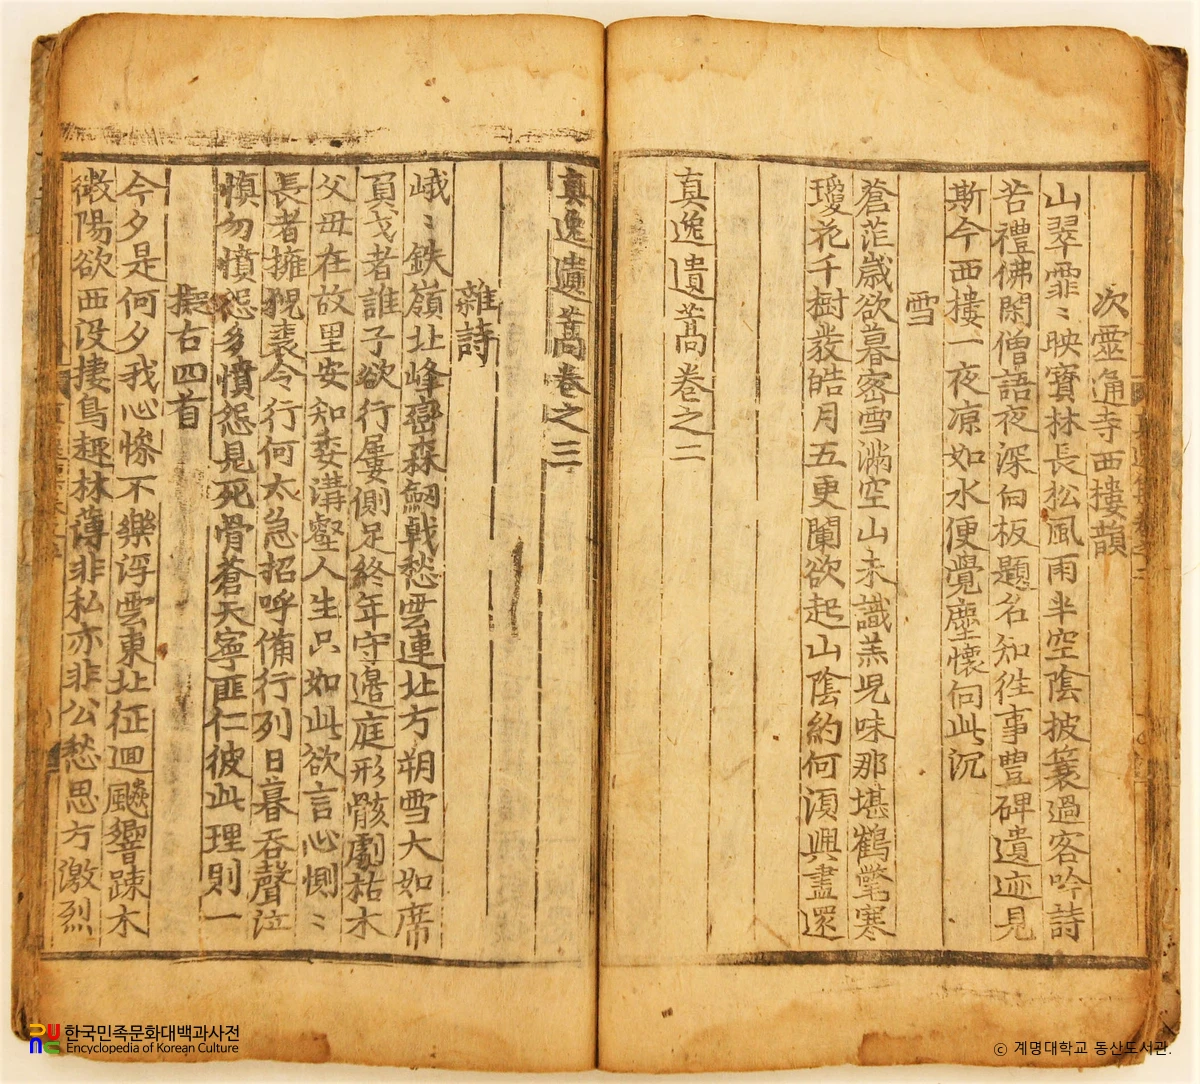 次靈通寺西樓韻
山翠霏〻映寶林長松風雨半空陰披簑過客吟詩
苦禮佛閑僧語夜深白板題名知徃事豊碑遺迹見
斯今西樓一夜凉如水便覺塵懷向此沉
雪
蒼茫歲欲暮密雪滿空山未識羔兒味那堪鶴氅寒
瓊花千樹發皓月五更闌欲起山陰約何須興盡還
真逸遺藁卷之二
真逸遺藁卷之三
雜詩
峨〻鉄嶺北峰巒森劒戟愁雲連北方朔雪大如席
負戈者誰子欲行屢側足終年守邊庭形骸劇枯木
父母在故里安知委溝壑人生只如此欲言心惻〻
長者擁貎裘令行何太急招呼備行列日暮吞聲泣
愼勿憤怨多憤怨見死骨蒼天寧匪仁彼此理則一
擬古四首
今夕是何夕我心慘不樂浮雲東北征迴飈響踈木
微陽欲西没捿鳥趣林薄非私亦非公愁思方激烈
한국민족문화대백과사전
Encyclopedia of Korean Culture
ⓒ 계명대학교 동산도서관.